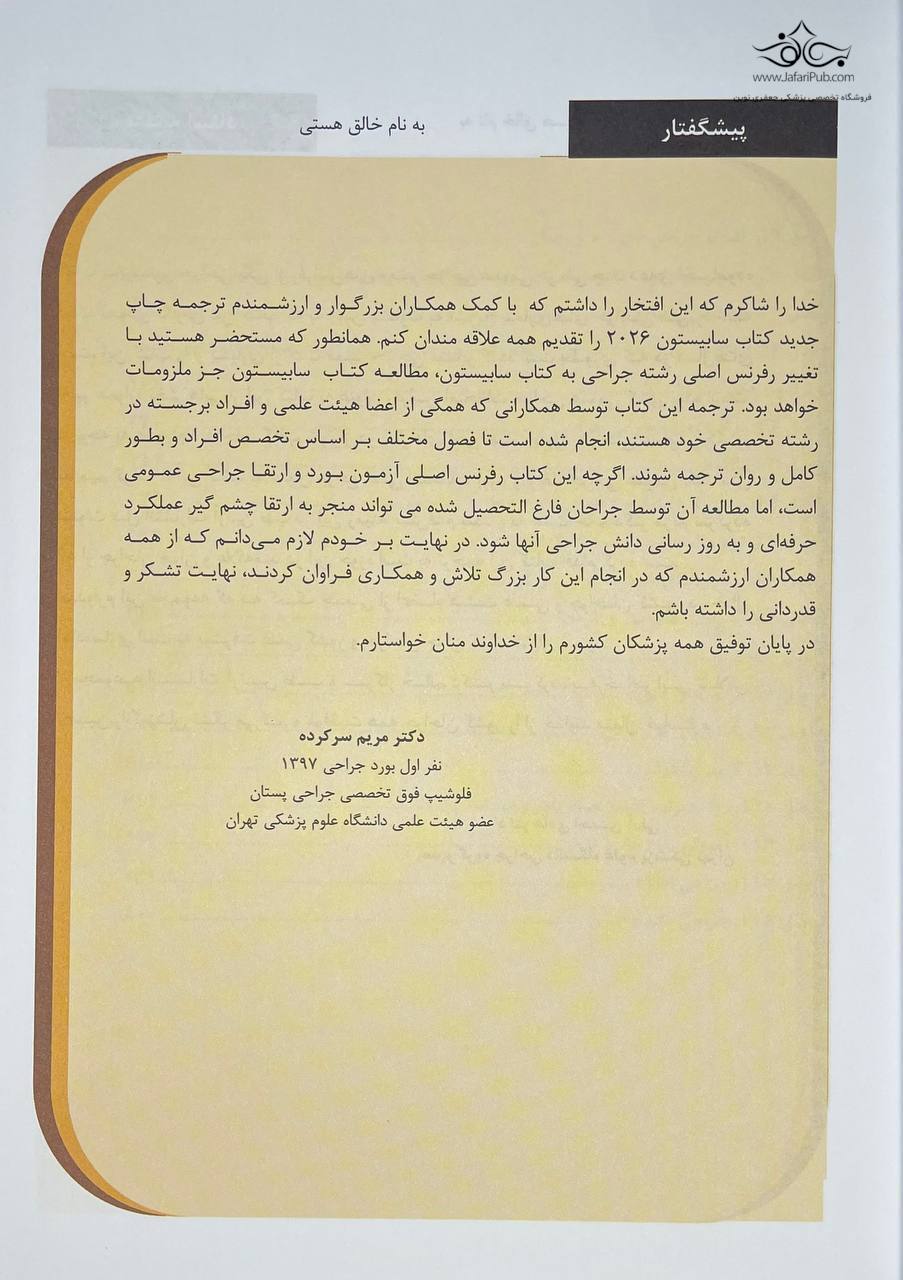 www.JafariPub.com
فروشگاه تخصصی پزشکی جعفری نوین
پیشگفتار
به نام خالق هستی
خدا را شاکرم که این افتخار را داشتم که با کمک همکاران بزرگوار و ارزشمندم ترجمه چاپ
جدید کتاب سابیستون ۲۰۲۶ را تقدیم همه علاقه مندان کنم. همانطور که مستحضر هستید با
تغییر رفرنس اصلی رشته جراحی به کتاب سابیستون، مطالعه کتاب سابیستون جز ملزومات
خواهد بود. ترجمه این کتاب توسط همکارانی که همگی از اعضا هیئت علمی و افراد برجسته در
رشته تخصصی خود هستند، انجام شده است تا فصول مختلف بر اساس تخصص افراد و بطور
کامل و روان ترجمه شوند. اگرچه این کتاب رفرنس اصلی آزمون بورد و ارتقا جراحی عمومی
است، اما مطالعه آن توسط جراحان فارغ التحصیل شده می تواند منجر به ارتقا چشم گیر عملکرد
حرفه‌ای و به روز رسانی دانش جراحی آنها شود. در نهایت بر خودم لازم می‌دانم که از همه
همکاران ارزشمندم که در انجام این کار بزرگ تلاش و همکاری فراوان کردند، نهایت تشکر و
قدردانی را داشته باشم.
در پایان توفیق همه پزشکان کشورم را از خداوند منان خواستارم.
دکتر مریم سرکرده
نفر اول بورد جراحی ۱۳۹۷
فلوشیپ فوق تخصصی جراحی پستان
عضو هیئت علمی دانشگاه علوم پزشکی تهران